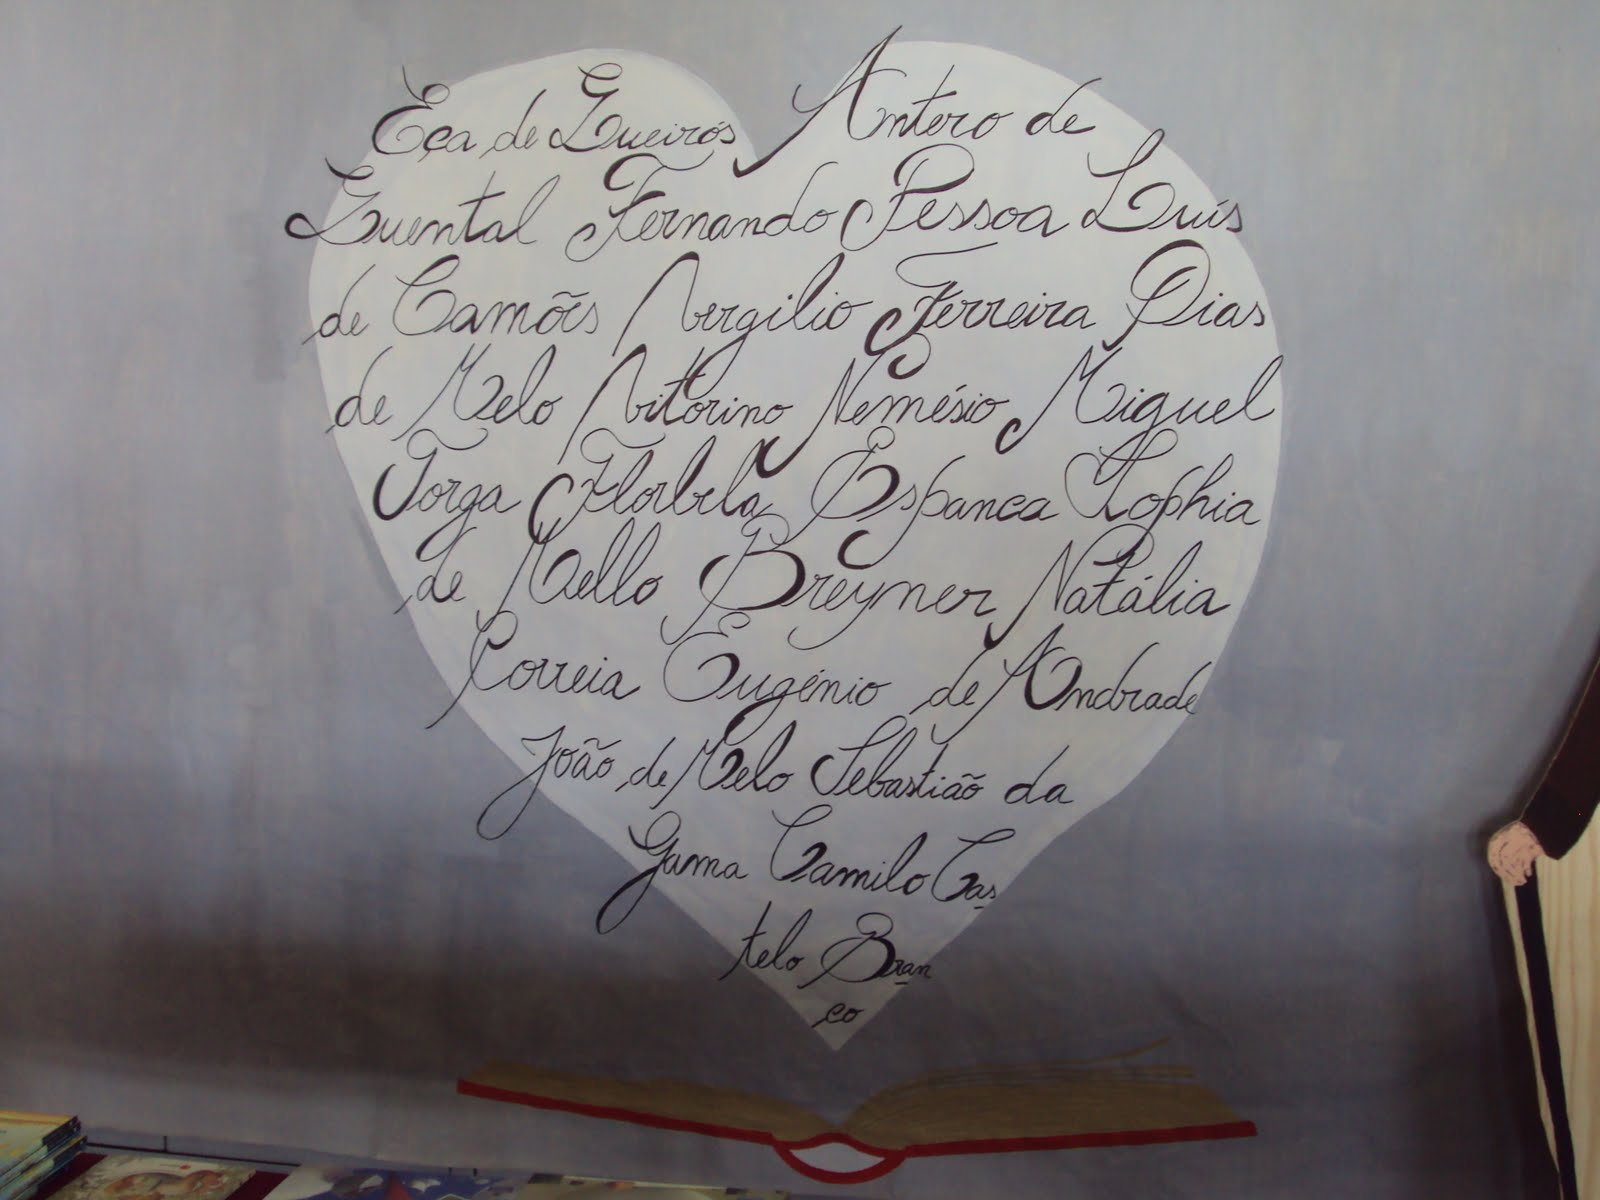 Eça de Queirós Antero de
Quental Fernando Pessoa Luís
de Camões Vergilio Ferreira Dias
de Melo Vitorino Nemésio Miguel
Torga Florbela Espanca Sophia
de Mello Breyner Natália
Correia Eugénio de Andrade
João de Melo Sebastião da
Gama Camilo Cas
telo Bran
co